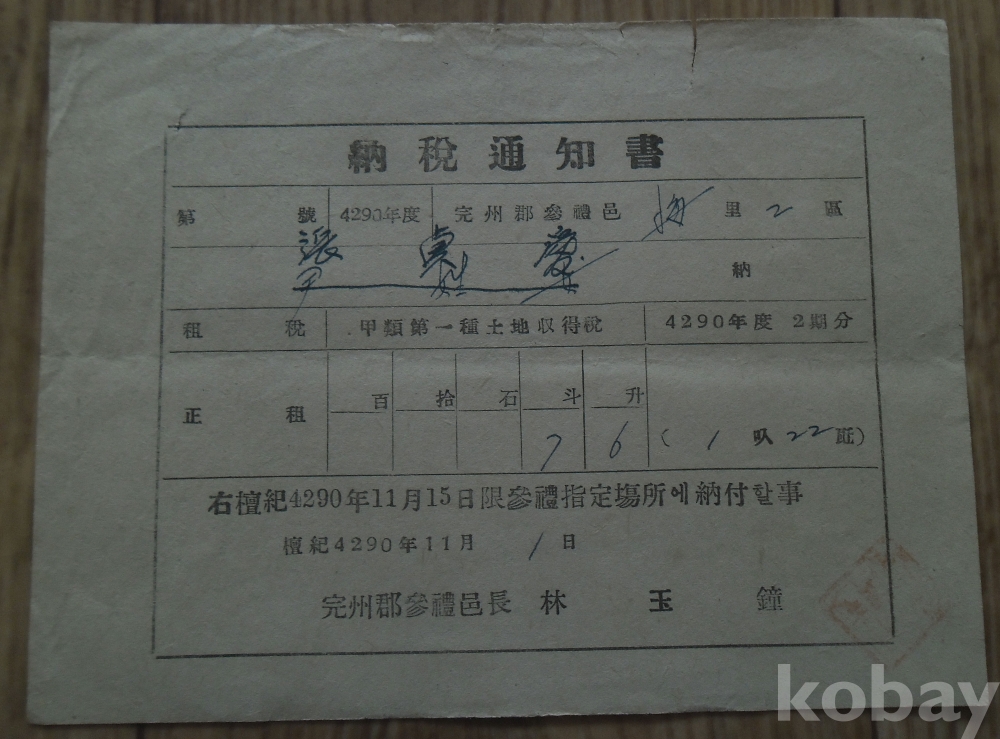 納稅通知書
第 號 4290年度 完州郡參禮邑 里 2 區
張
納
租稅 甲類第一種土地収得稅 4290年度 2期分
百 拾 石 斗 升
正租 7 6 ( 1 叺 22 瓩)
右檀紀4290年11月15日限參禮指定場所에納付할事
檀紀4290年11月 1 日
完州郡參禮邑長 林玉鐘
kobay